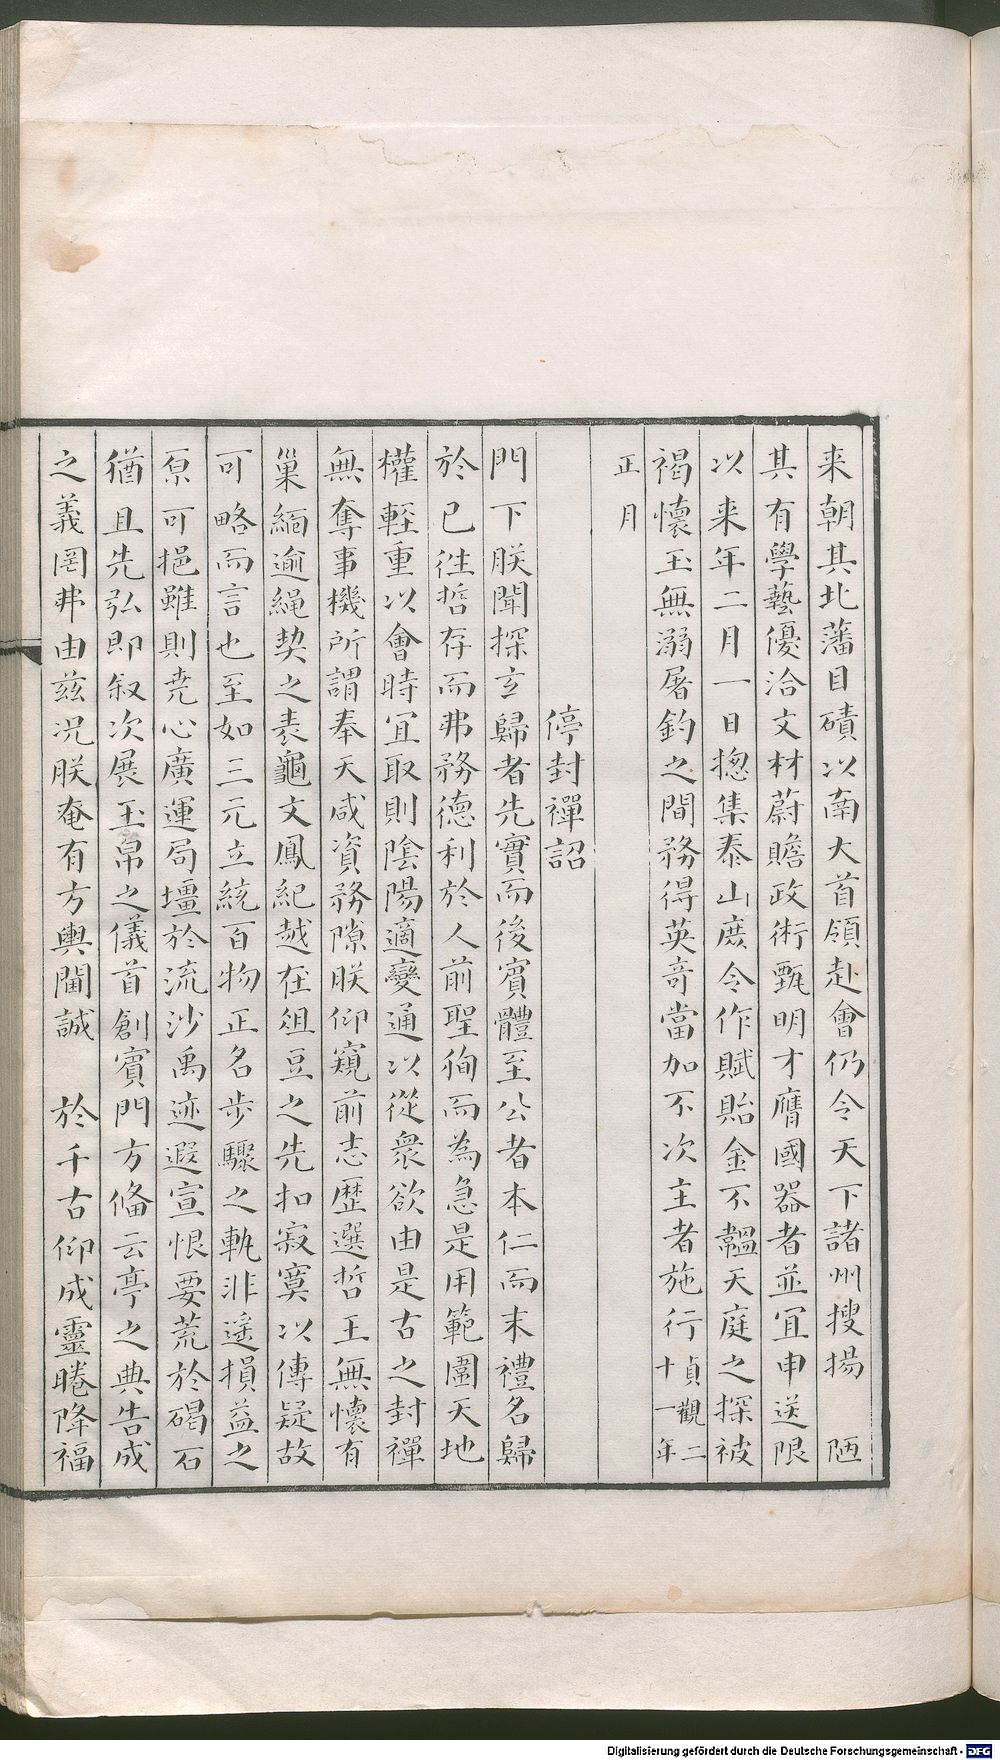 来朝其北藩目磧以南大首領赴會仍令天下諸州搜揚 陋
其有學藝優洽文材蔚贍政術甄明才膺國器者並宜申送限
以来年二月一日揔集泰山庶令作賦貽金不韞天庭之探被
褐懷玉無溺屠釣之間務得英竒當加不次主者施行貞觀二十一年
正月
停封禪詔
門下朕聞探玄歸者先實而後賓體至公者本仁而末禮名歸
於已徃哲存而弗務德利於人前聖徇而為急是用範圍天地
權輕重以會時宜取則陰陽適變通以從衆欲由是古之封禪
無奪事機所謂奉天咸資務隙朕仰窺前志歷選哲王無懷有
巢緬逾繩契之表龜文鳳紀越在俎豆之先扣寂寞以傳疑故
可略而言也至如三元立統百物正名步驟之軌非遥損益之
原可挹雖則堯心廣運局壃於流沙禹迹遐宣恨要荒於碣石
猶且先弘即叙次展玉帛之儀首創賓門方俻云亭之典告成
之義罔弗由兹况朕奄有方輿闡誠 於千古仰成靈睠降福
Digitalisierung gefördert durch die Deutsche Forschungsgemeinschaft - DFG